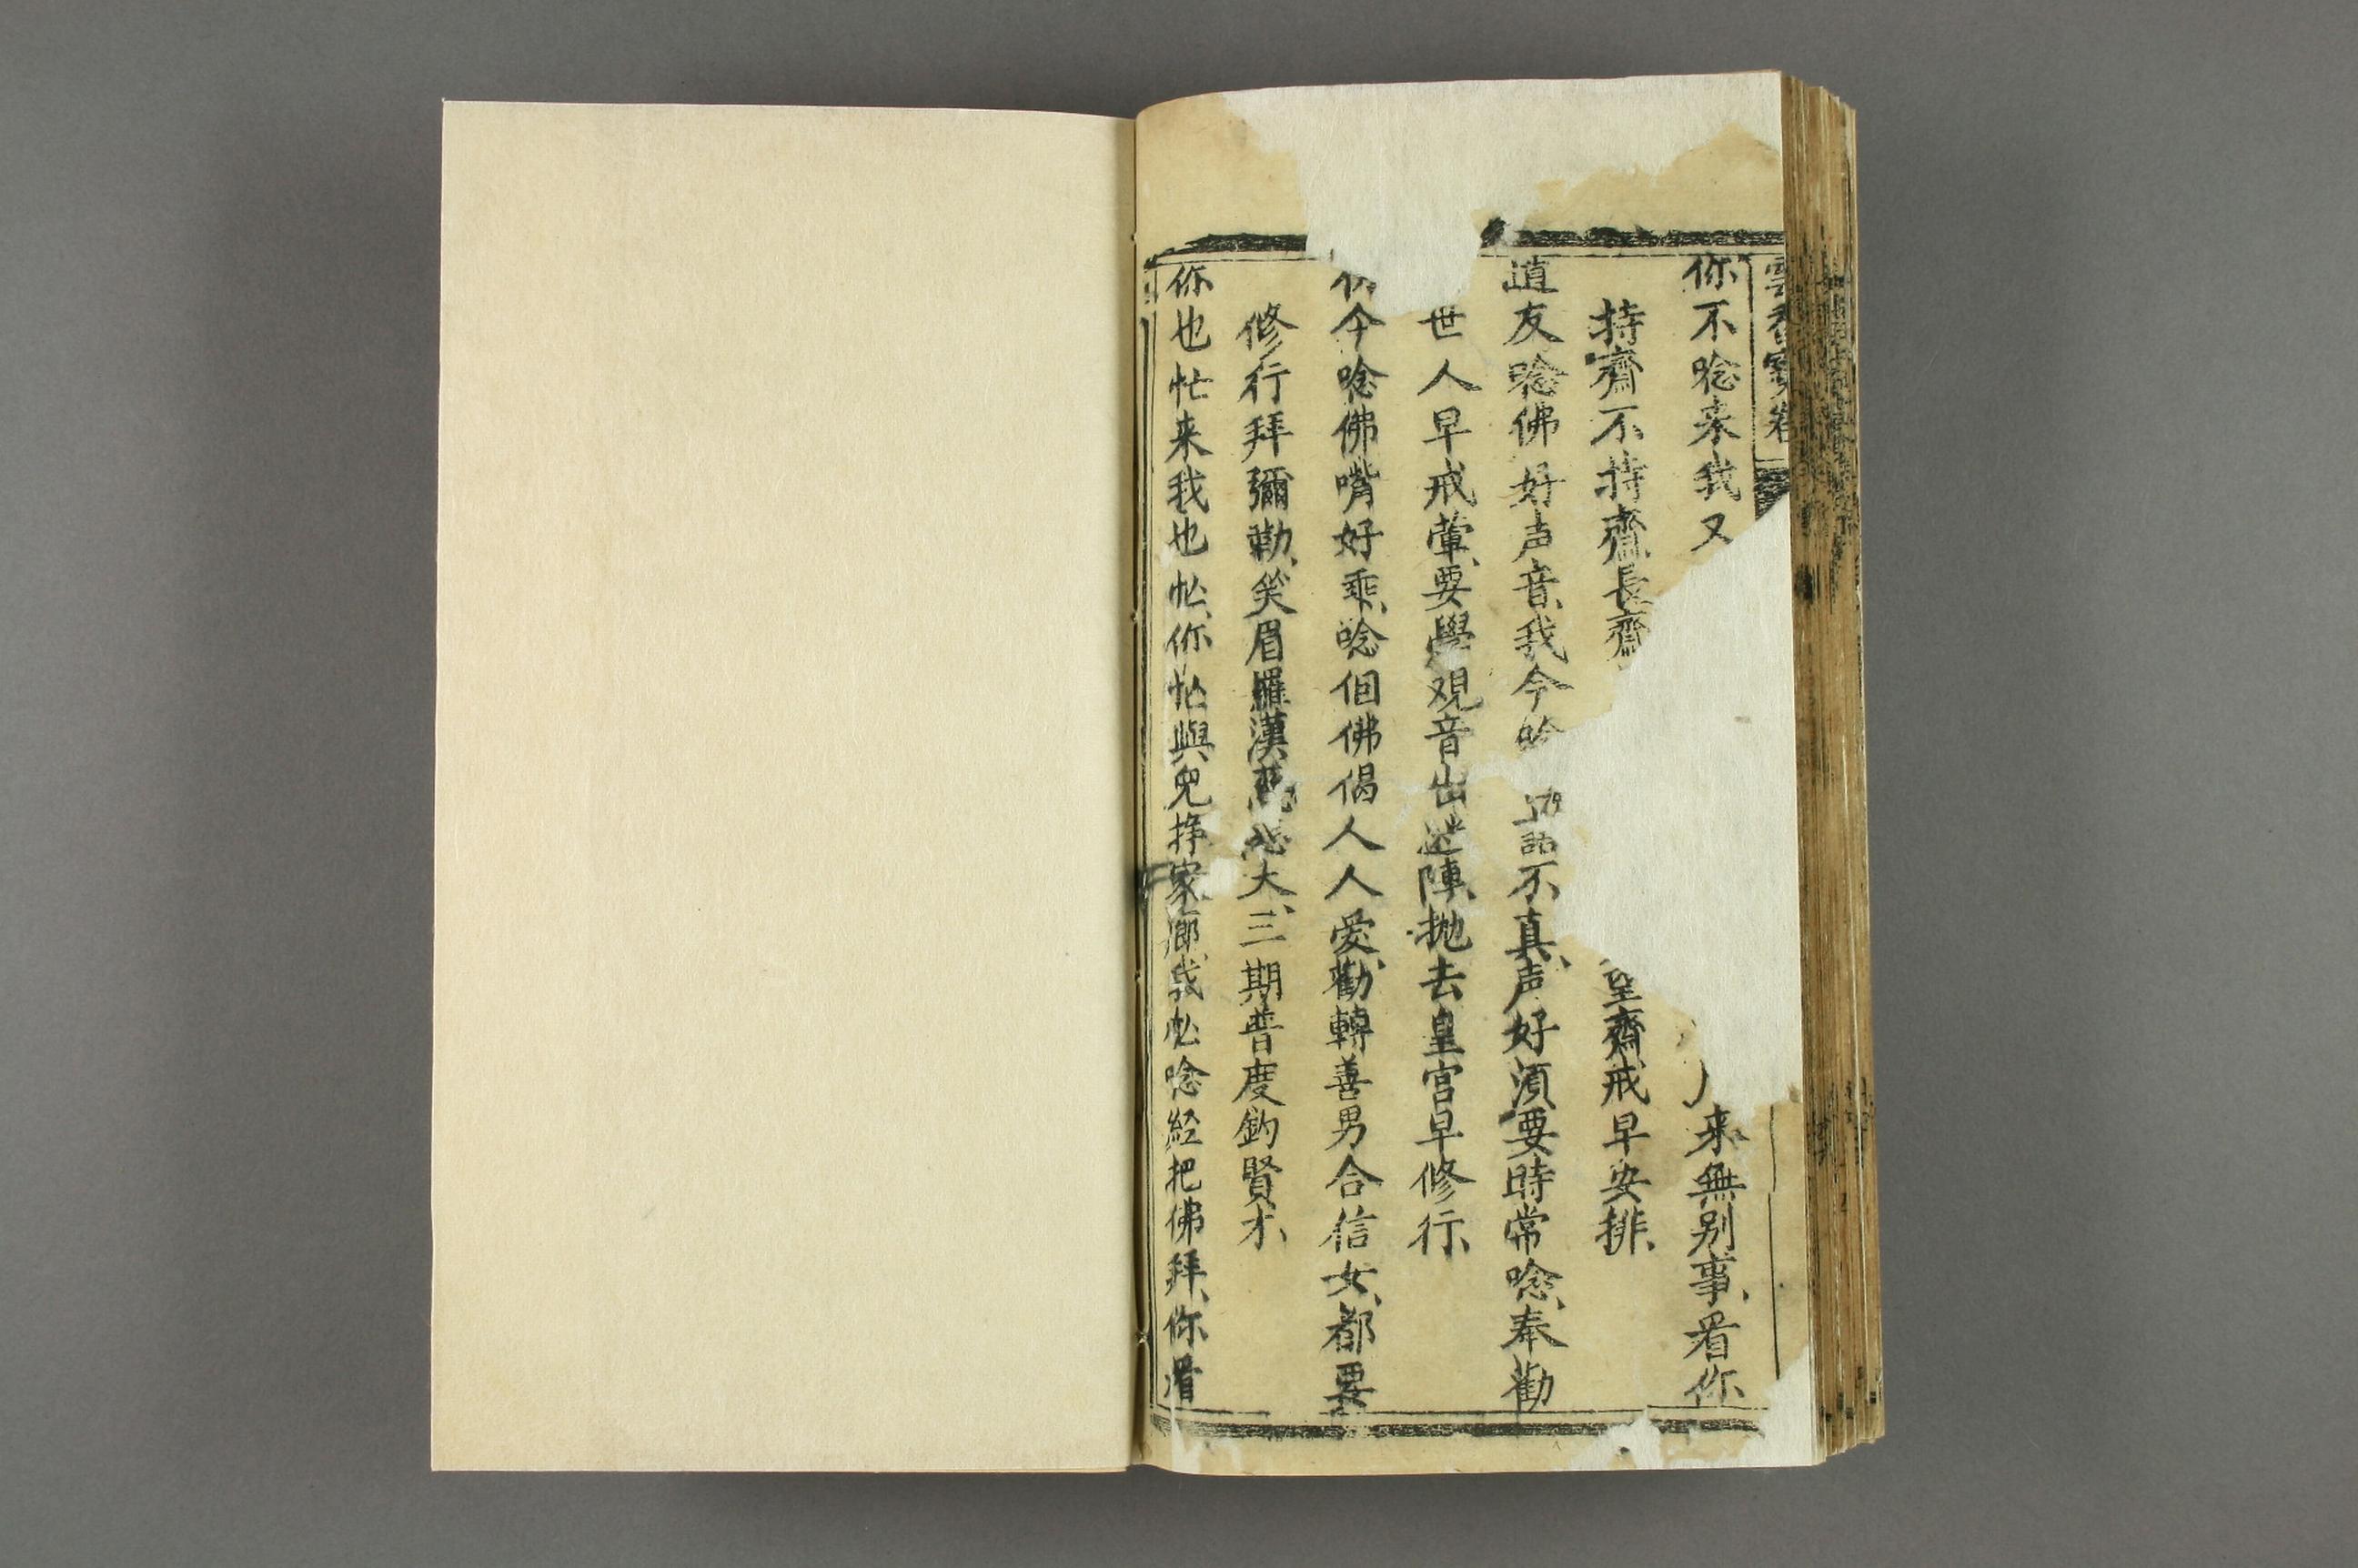 雲香寶卷
你不唸来我又来無别事、看你
持齋不持齋、長齋皇齋、戒早安排、
道友唸佛好声音、我今話不真、声好須要時常唸、奉勸
世人早戒葷、要學观音出迷陣、抛去皇宫早修行、
今唸佛嘴好乖、唸佪佛偈人人愛、勸轉善男合信女、都要
修行拜彌勒、笑眉羅漢慈悲大、三期普度釣賢才、
你也忙来我也忙、你忙與兒挣家廊、我忙唸経把佛拜、你看